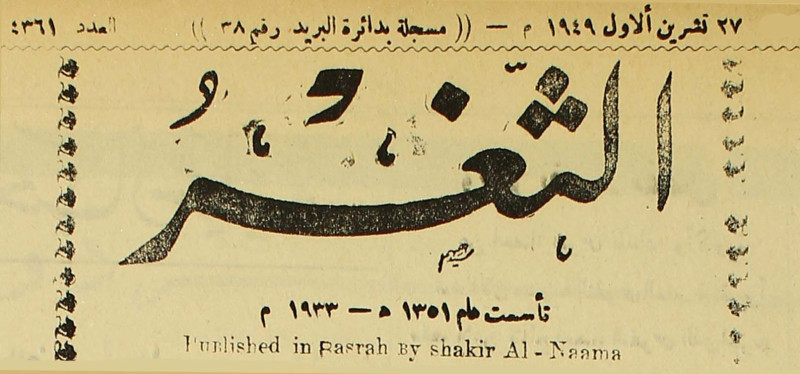 ٢٧ تشرين ألاول ١٩٤٩ م — (( مسجلة بدائرة البريد رقم ٣٨ )) العدد ٤٣٦١
الثَّغْرُ
تأسست عام ١٣٥١ ه — ١٩٣٣ م
Published in Basrah By shakir Al - Naama